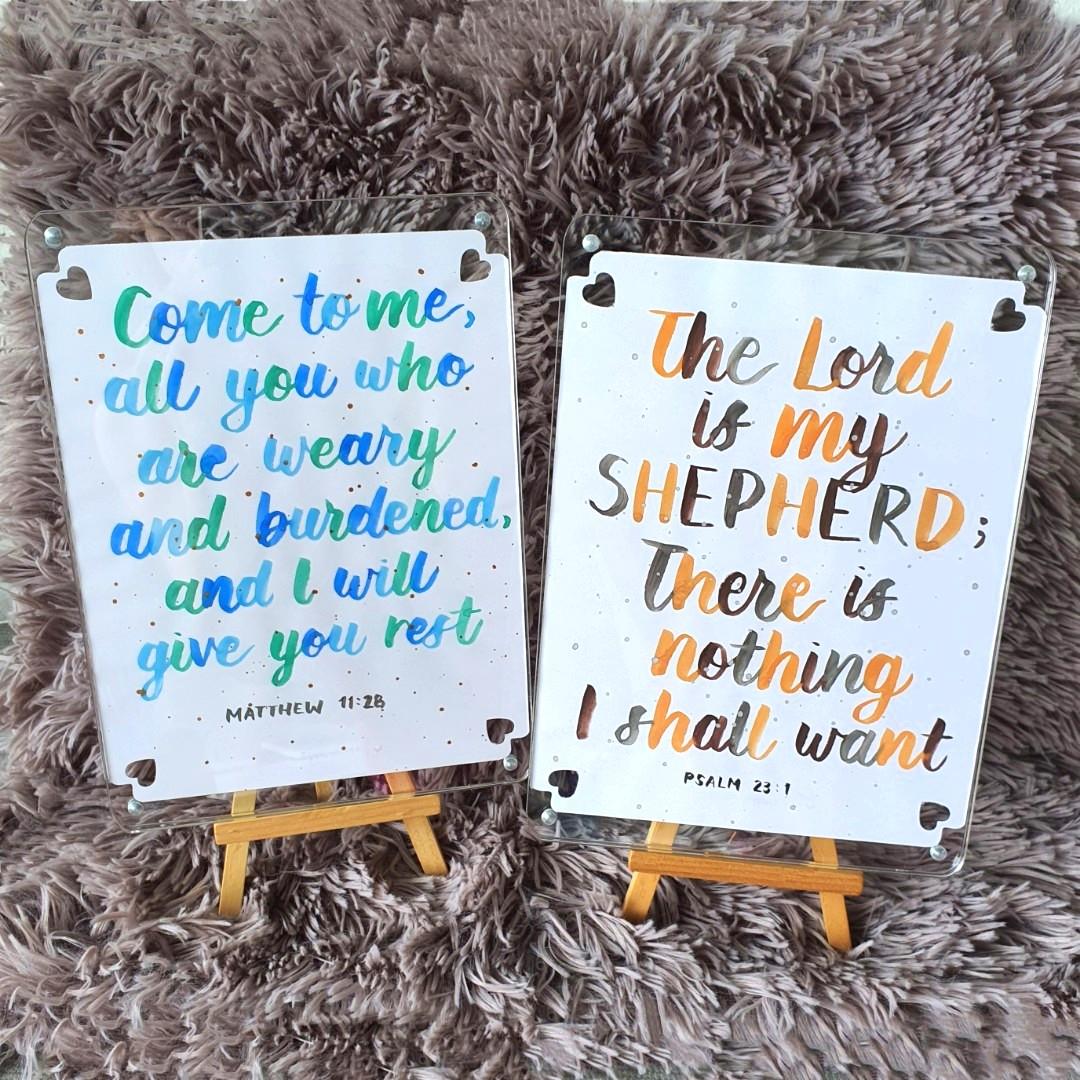 Come to me,
all you who
are weary
and burdened,
and I will
give you rest
MATTHEW 11:28
The Lord
is my
SHEPHERD;
There is
nothing
I shall want
PSALM 23:1